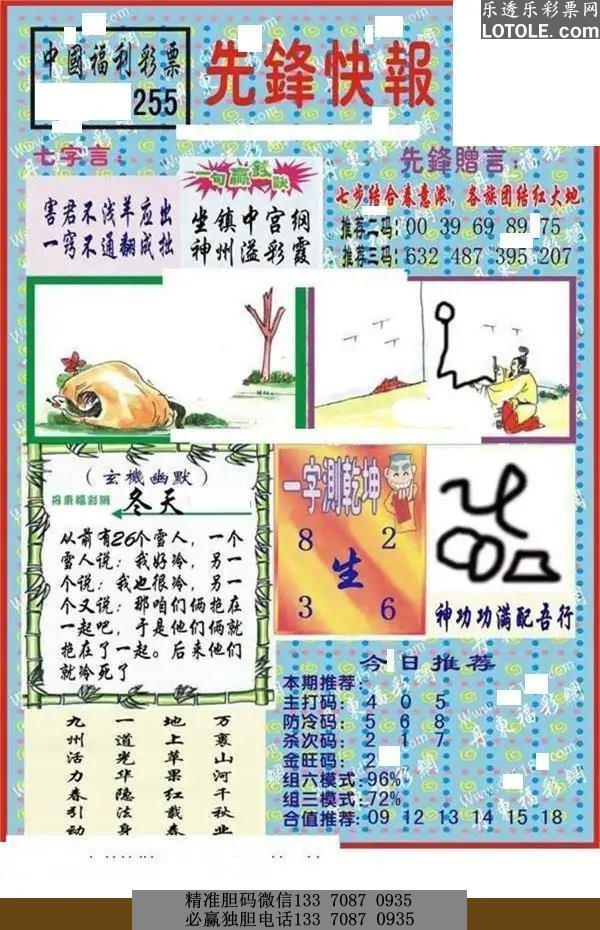 乐透乐彩票网
LOTOLE.COM
中國福利彩票
255
先鋒快報
七字言：
害君不浅羊应出
一窍不通翻成拙
一句赢钱诀
坐镇中宫纲
神州溢彩霞
先鋒贈言：
七步结合春意浓，各族团结红大地
推荐二码：00 39 69 89 75
推荐三码：632 487 395 207
（玄機幽默）
丹東福彩網
冬天
从前有26个雪人，一个
雪人说：我好冷，另一
个说：我也很冷，另一
个又说：那咱们俩抱在
一起吧，于是他们俩就
抱在了一起。后来他们
就冷死了
一字測乾坤
8 2
生
3 6
神功功满配吾行
九州活力春引动
一道光华隐法身
地上苹果红载春
万裏山河千秋业
今日推荐
本期推荐
主打码：4 0 5
防冷码：5 6 8
杀次码：2 1 7
金旺码：2
组六模式：96%
组三模式：72%
合值推荐：09 12 13 14 15 18
精准胆码微信133 7087 0935
必赢独胆电话133 7087 0935